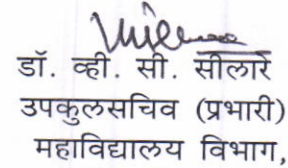 डॉ. व्ही. सी. सीलारे
उपकुलसचिव (प्रभारी)
महाविद्यालय विभाग,